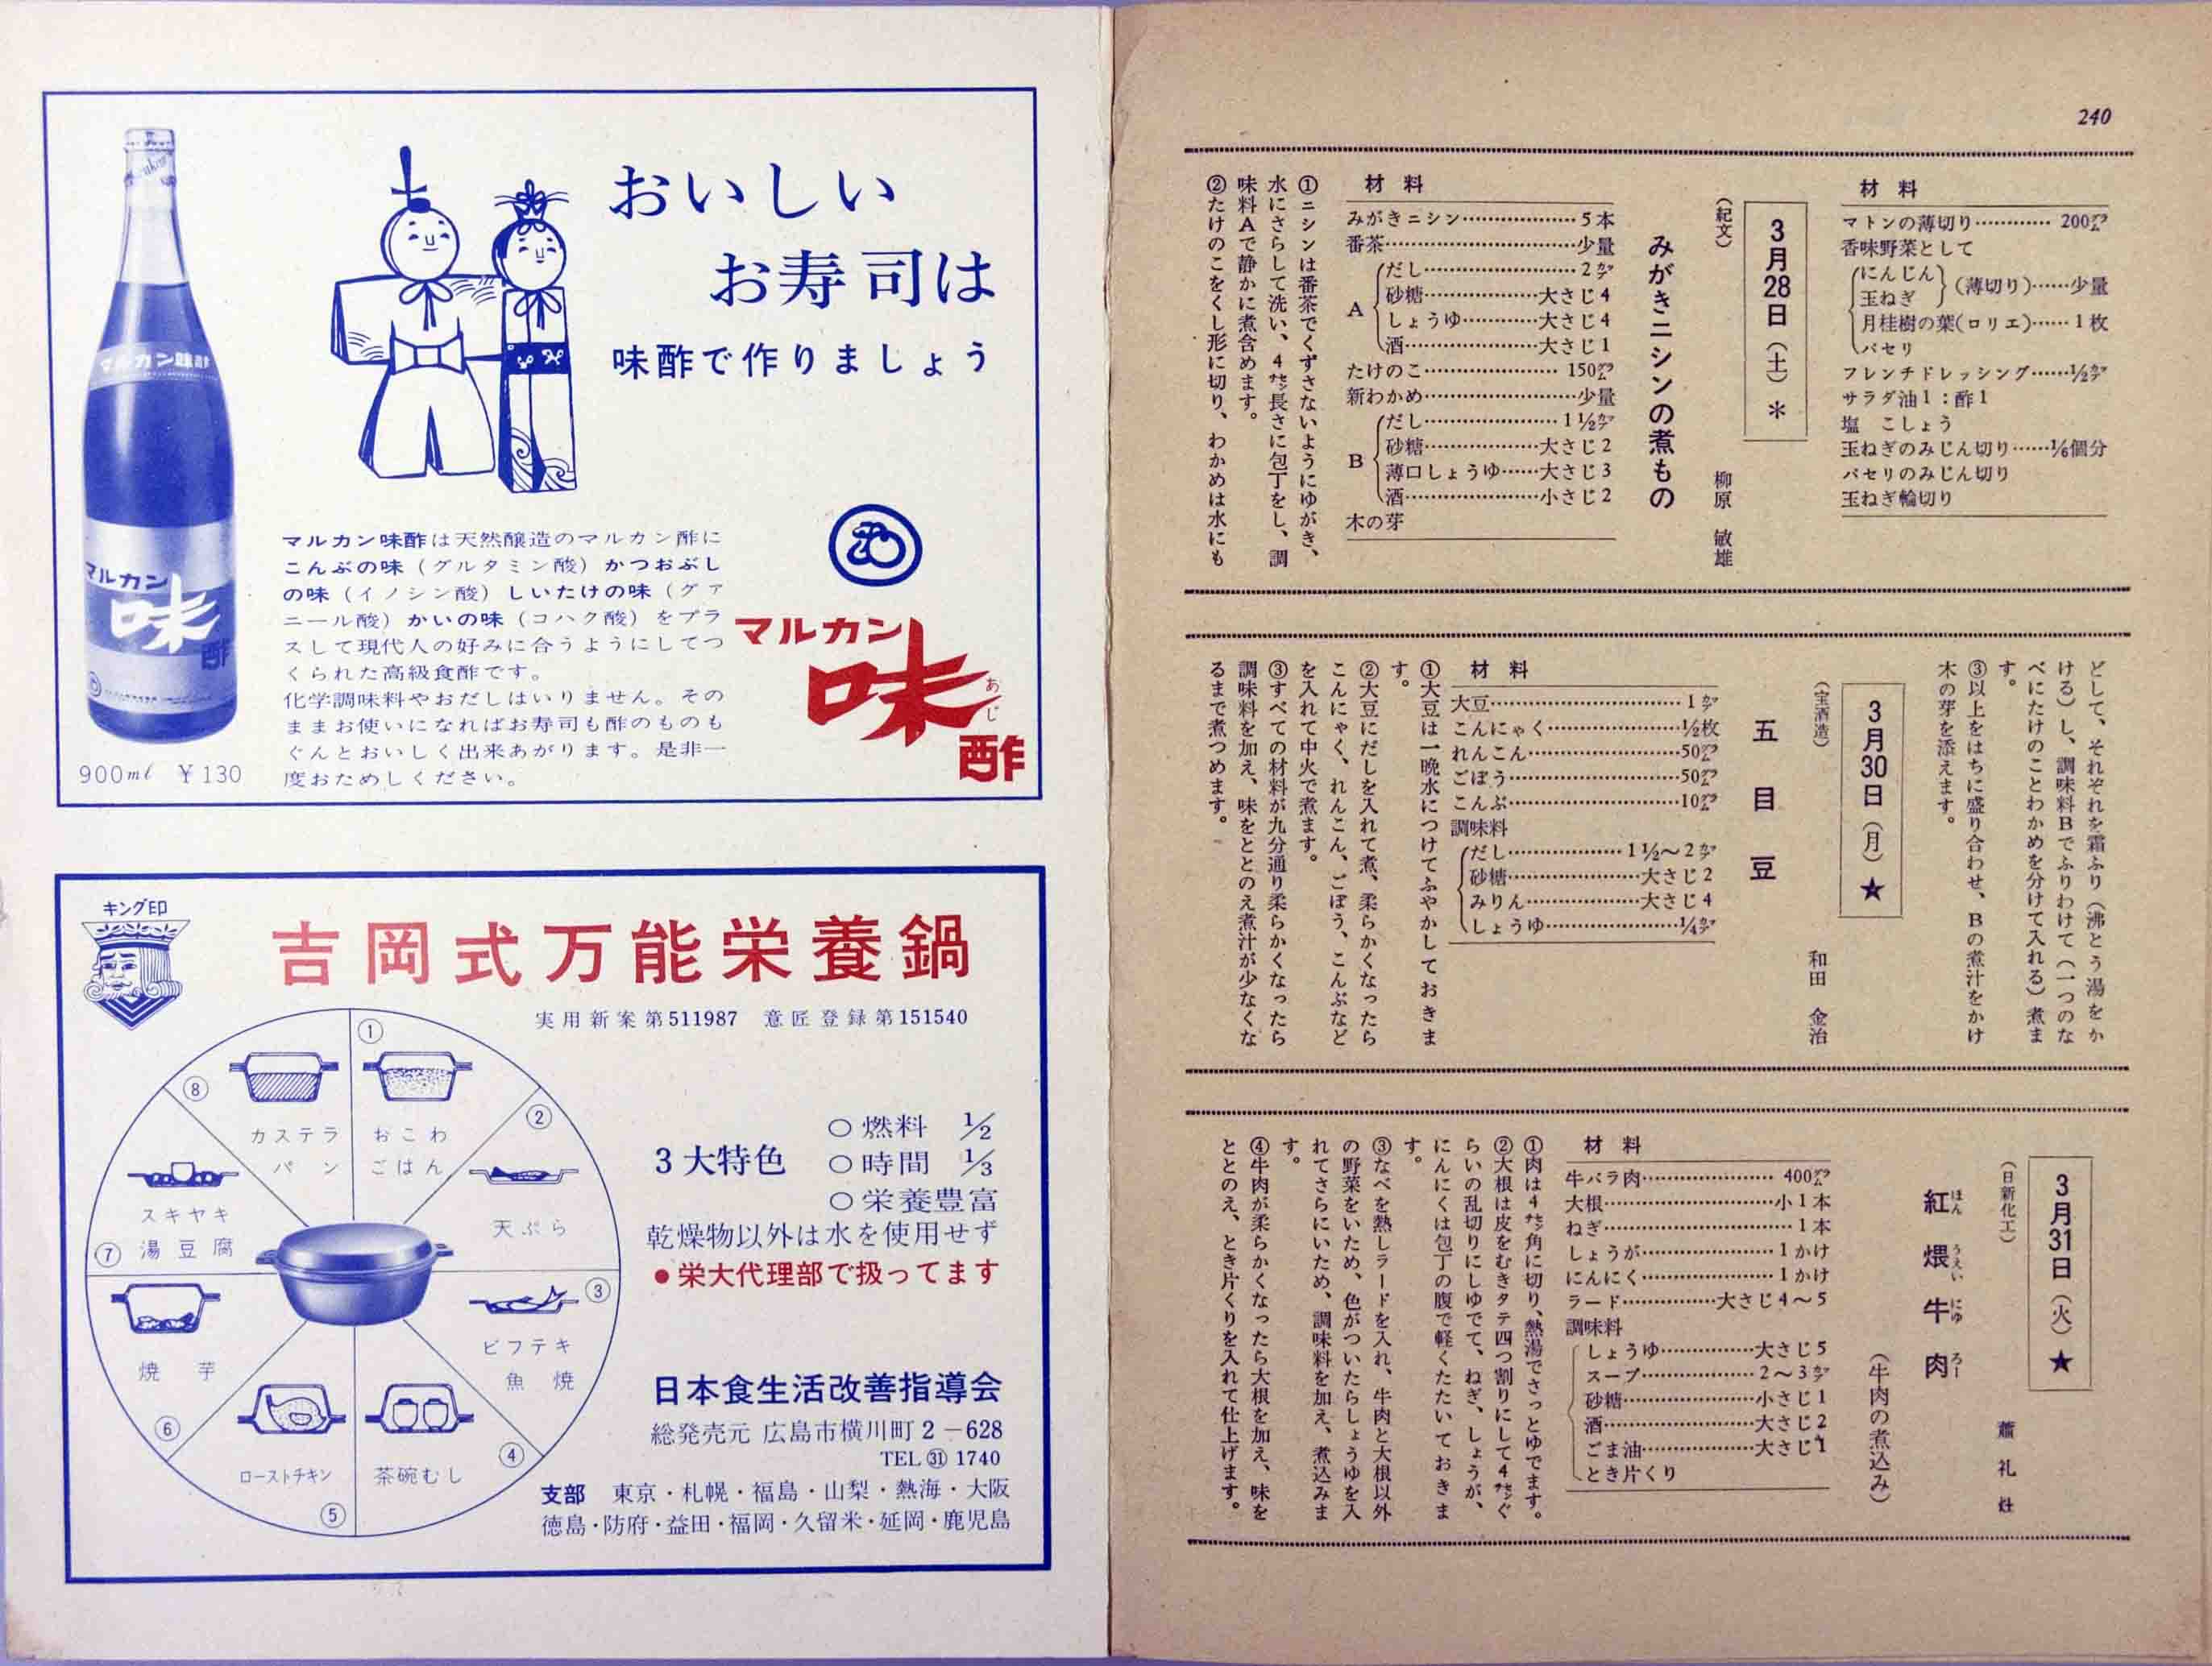 240
材料
マトンの薄切り………… 200㌘
香味野菜として
にんじん
玉ねぎ
(薄切り)……少量
月桂樹の葉(ロリエ)……1枚
パセリ
フレンチドレッシング……½㌍
サラダ油1:酢1
塩 こしょう
玉ねぎのみじん切り……⅙個分
パセリのみじん切り
玉ねぎ輪切り
3月28日(土)*
(紀文) 柳原 敏雄
みがきニシンの煮もの
材料
みがきニシン………………5本
番茶…………………………少量
A
だし……………………2㌍
砂糖………………大さじ4
しょうゆ…………大さじ4
酒…………………大さじ1
たけのこ………………… 150㌘
新わかめ……………………少量
B
だし…………………1½㌍
砂糖………………大さじ2
薄口しょうゆ……大さじ3
酒…………………小さじ2
木の芽
①ニシンは番茶でくずさないようにゆがき、
水にさらして洗い、4㌢長さに包丁をし、調
味料Aで静かに煮含めます。
②たけのこをくし形に切り、わかめは水にも
どして、それぞれを霜ふり(沸とう湯をか
ける)し、調味料Bでふりわけて(一つのな
べにたけのことわかめを分けて入れる)煮ま
す。
③以上をはちに盛り合わせ、Bの煮汁をかけ
木の芽を添えます。
3月30日(月)★
(宝酒造) 和田 金治
五目豆
材料
大豆…………………………1㌍
こんにゃく…………………½枚
れんこん……………………50㌘
ごぼう………………………50㌘
こんぶ………………………10㌘
調味料
だし………………1½〜2㌍
砂糖…………………大さじ2
みりん………………大さじ4
しょうゆ…………………¼㌍
①大豆は一晩水につけてふやかしておきま
す。
②大豆にだしを入れて煮、柔らかくなったら
こんにゃく、れんこん、ごぼう、こんぶなど
を入れて中火で煮ます。
③すべての材料が九分通り柔らかくなったら
調味料を加え、味をととのえ煮汁が少なくな
るまで煮つめます。
3月31日(火)★
(日新化工) 蕭 礼
紅煨牛肉
ほん うえい にゆ ろー
(牛肉の煮込み)
材料
牛バラ肉………………… 400㌘
大根………………………小1本
ねぎ…………………………1本
しょうが…………………1かけ
にんにく…………………1かけ
ラード……………大さじ4〜5
調味料
しょうゆ……………大さじ5
スープ………………2〜3㌍
砂糖…………………小さじ1
酒……………………大さじ2
ごま油………………大さじ1
とき片くり
①肉は4㌢角に切り、熱湯でさっとゆでます。
②大根は皮をむきタテ四つ割りにして4㌢ぐ
らいの乱切りにしゆでて、ねぎ、しょうが、
にんにくは包丁の腹で軽くたたいておきま
す。
③なべを熱しラードを入れ、牛肉と大根以外
の野菜をいため、色がついたらしょうゆを入
れてさらにいため、調味料を加え、煮込みま
す。
④牛肉が柔らかくなったら大根を加え、味を
ととのえ、とき片くりを入れて仕上げます。
おいしい
お寿司は
味酢で作りましょう
マルカン味酢
マルカン
味
酢
900ml ¥130
マルカン味酢は天然醸造のマルカン酢に
こんぶの味(グルタミン酸)かつおぶし
の味(イノシン酸)しいたけの味(グァ
ニール酸)かいの味(コハク酸)をプラ
スして現代人の好みに合うようにしてつ
くられた高級食酢です。
化学調味料やおだしはいりません。その
ままお使いになればお寿司も酢のものも
ぐんとおいしく出来あがります。是非一
度おためしください。
マルカン
味
あじ
酢
キング印
吉岡式万能栄養鍋
実用新案第511987 意匠登録第151540
①
おこわ
ごはん
②
天ぷら
③
ビフテキ
魚焼
④
茶碗むし
⑤
ローストチキン
⑥
焼芋
⑦
スキヤキ
湯豆腐
⑧
カステラ
パン
3大特色
○燃料 ½
○時間 ⅓
○栄養豊富
乾燥物以外は水を使用せず
●栄大代理部で扱ってます
日本食生活改善指導会
総発売元 広島市横川町2-628
TEL㉛1740
支部 東京・札幌・福島・山梨・熱海・大阪
徳島・防府・益田・福岡・久留米・延岡・鹿児島